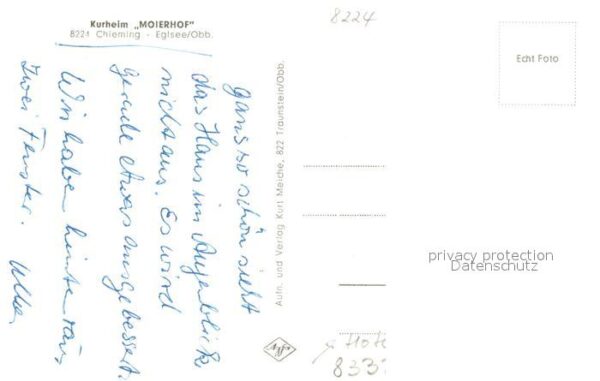 Kurheim „MOIERHOF"
8224 Chieming - Eglsee/Obb.
8224
Echt Foto
ganz so schön sieht
das Haus im Augenblick
nicht aus. Es wird
gerade etwas ausgebessert.
Wir haben hinten raus
zwei Fenster.
Aufn. und Verlag Kurt Meiche, 822 Traunstein/Obb.
Agfa
privacy protection
Datenschutz
Hote
833